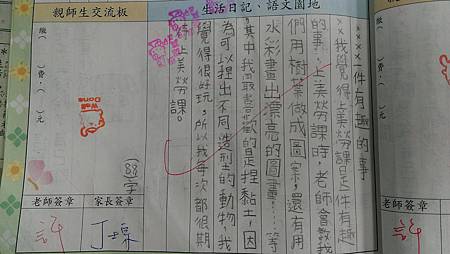 生活日記、語文園地
××××一件有趣的事
××我覺得上美勞課是件有趣
的事,上美勞課時,老師會教我
們用樹葉做成圖案,還有用
水彩畫出漂亮的圖畫…等
,其中我最喜歡的是捏黏土,因
為可以捏出不同造型的動物,我
覺得很好玩,所以我每次都很期
待上美勞課。
親師生交流板
繳( )費:( )元
Well Done
88字
老師簽章
家長簽章
許
老師簽章
許